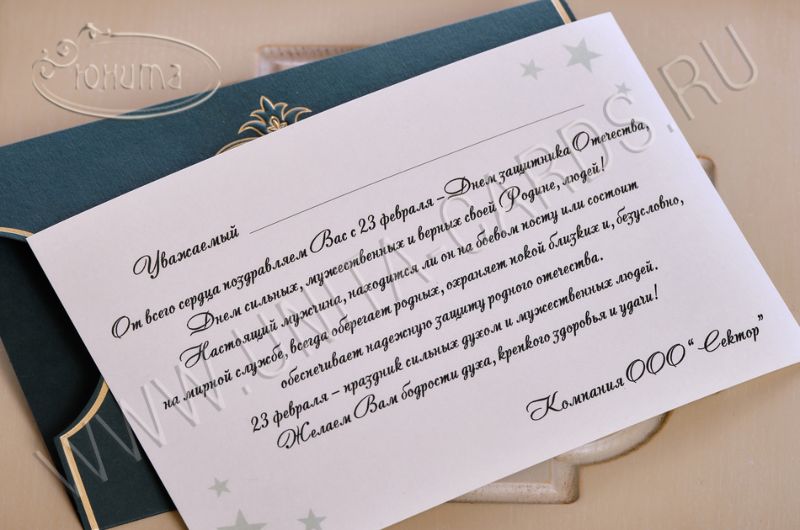 Юнита
WWW.UNITA-CARDS.RU
Уважаемый
От всего сердца поздравляем Вас с 23 февраля – Днем защитника Отечества,
Днем сильных, мужественных и верных своей Родине, людей!
Настоящий мужчина, находится ли он на боевом посту или состоит
на мирной службе, всегда оберегает родных, охраняет покой близких и, безусловно,
обеспечивает надежную защиту родного отечества.
23 февраля – праздник сильных духом и мужественных людей.
Желаем Вам бодрости духа, крепкого здоровья и удачи!
Компания ООО “ Сектор”